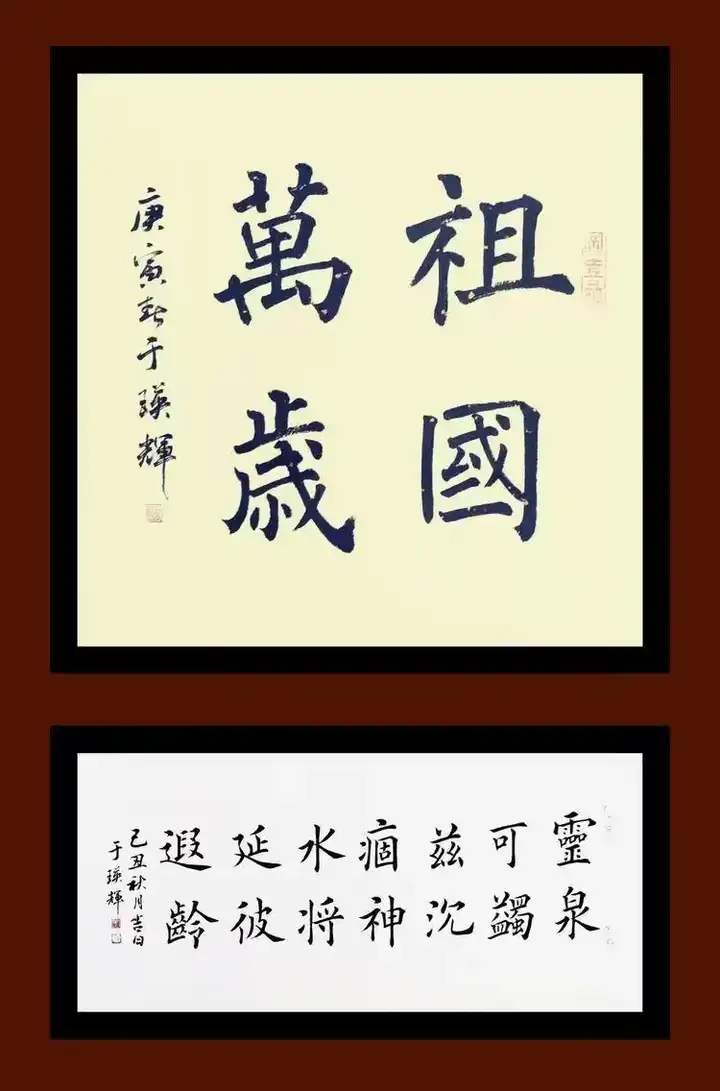 祖國
萬歲
庚寅春于瑛輝
靈泉
可蠲
兹沉
痼神
水将
延彼
遐齡
己丑秋月吉日
于瑛輝